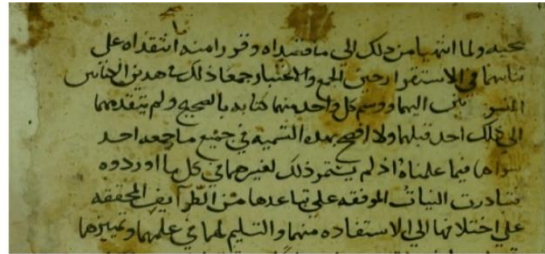 عهده ولما انتهيا من ذلك الي ما قصداه وقررا منه ما انتقداه علي
تناهيهما في الاستقرا رحين الجمع والاختبار جمعا ذلك في هدين الكتابين
المنسوبين اليهما ووسم كل واحد منهما كتابه بالصحيح ولم يتقدمهما
الي ذلك احد قبلهما ولا افصح بهذه التسميه في جميع ما جمعه احد
سواهما فيما علمناه اذ لم يستمر ذلك لغيرهما في كل ما اورده
فتبادرت النيات الموفقه علي تباعدها من الطرايف المحققه
علي اختلافها الي الاستفاده منهما والتسليم لهما في علمهما وتمييزهما